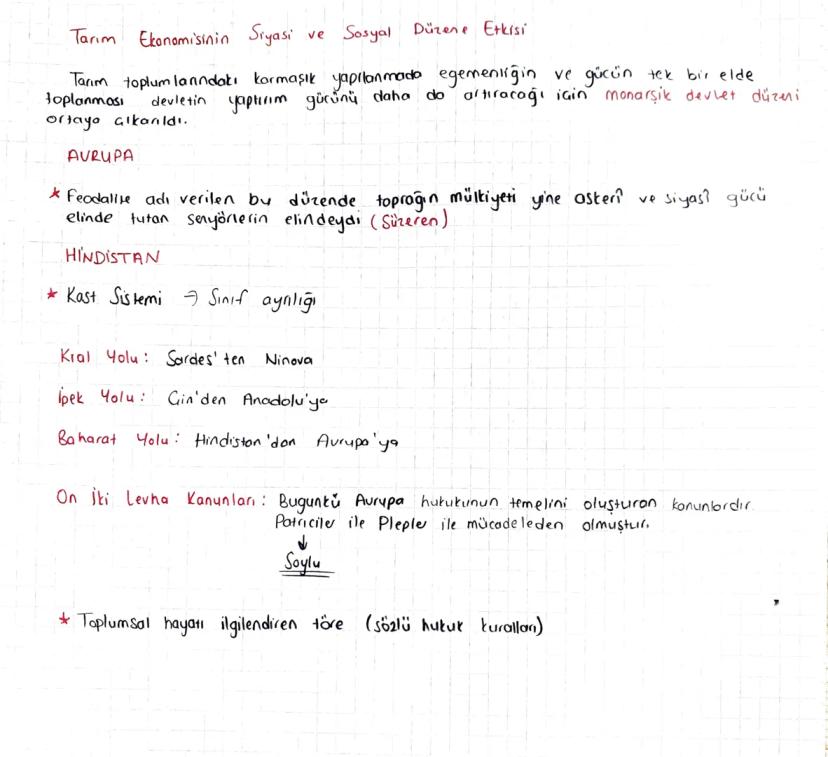 Tarım Ekonomisinin Siyasi ve Sosyal Düzene Etkisi
Tarım toplumlarındaki karmaşık yapılanmada egemenliğin ve gücün tek bir elde
toplanması devletin yaptırım gücünü daha da artıracağı için monarşik devlet düzeni
ortaya çıkarıldı.
AVRUPA
* Feodalite adı verilen bu düzende toprağın mülkiyeti yine askerî ve siyasî gücü
elinde tutan senyörlerin elindeydi (Süzeren)
HİNDİSTAN
* Kast Sistemi → Sınıf ayrılığı
Kral Yolu: Sardes'ten Ninova
İpek Yolu: Çin'den Anadolu'ya
Baharat Yolu: Hindistan'dan Avrupa'ya
On İki Levha Kanunları: Bugünkü Avrupa hukukunun temelini oluşturan kanunlardır.
Patriciler ile Plepler ile mücadeleden olmuştur.
↓
Soylu
* Toplumsal hayatı ilgilendiren töre (sözlü hukuk kuralları)